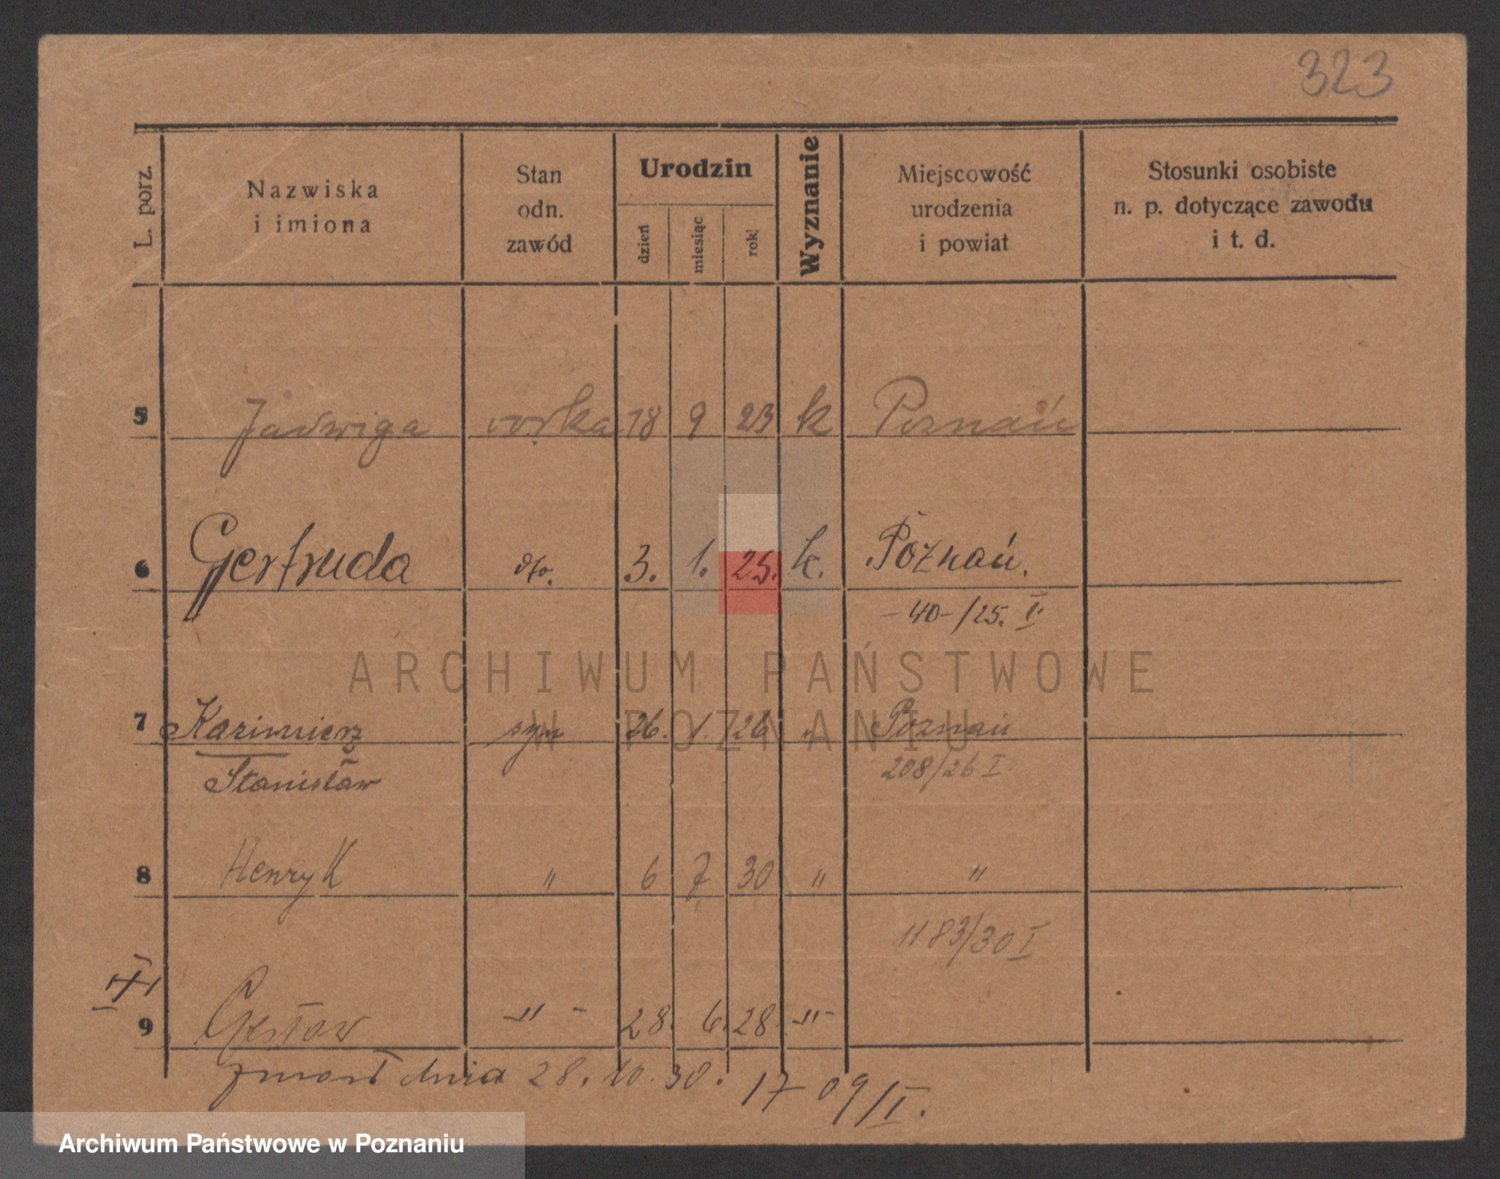 323
L. porz.
Nazwiska
i imiona
Stan
odn.
zawód
Urodzin
dzień
miesiąc
rok
Wyznanie
Miejscowość
urodzenia
i powiat
Stosunki osobiste
n. p. dotyczące zawodu
i t. d.
5 Jadwiga córka 18 9 23 k Poznań
6 Gertruda dto. 3. 1. 25. k. Poznań.
-40-/25. I.
ARCHIWUM PAŃSTWOWE
W POZNANIU
7 Kazimierz syn 26. 1. 26 " Poznań
Stanisław 208/26 I
8 Henryk " 6 7 30 " "
1183/30 I
9 -"- 28. 6. 28. -"-
zmarł dnia 28. 10. 30. 1709/I.
Archiwum Państwowe w Poznaniu